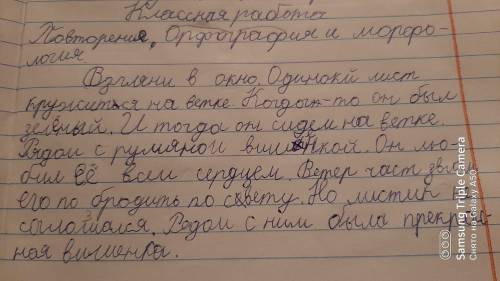 Классная работа
Повторения. Орфография и морфо-
логия
Взгляни в окно. Одинокй лист
кружиться на ветке. Когдат-то он был
зелёный. И тогда он сидел на ветке.
Рядом с румяной вишенкой. Он лю-
бил её всем сердцем. Ветер част звал
его по бродить по свету. Но листик
соглошался. Рядом с ним была прекрас
ная вишенка.
Samsung Triple Camera
Снято на Galaxy A50